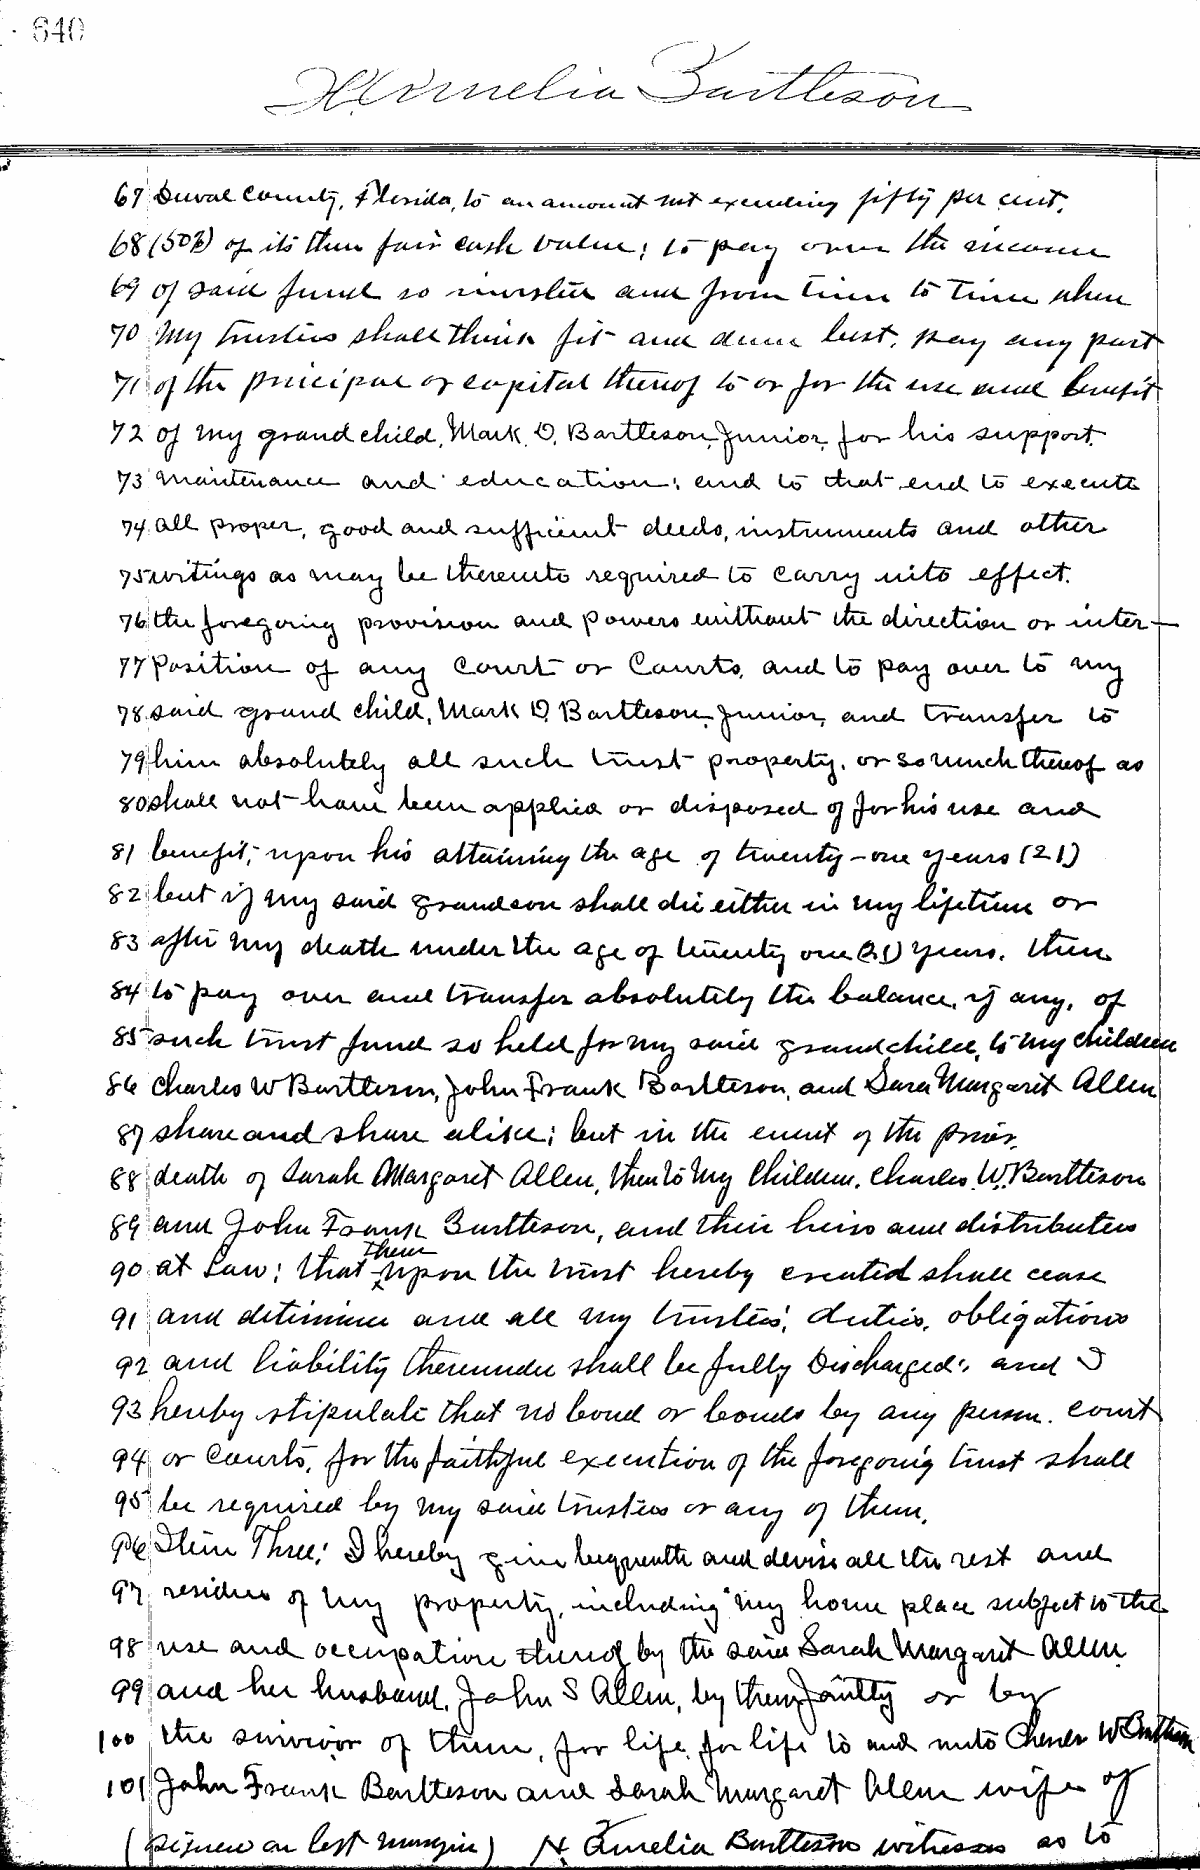 640
H. Amelia Bartleson
67 Duval County, Florida, to an amount not exceeding fifty per cent.
68 (50%) of its then fair cash value; to pay over the income
69 of said fund so invested and from time to time when
70 my trustees shall think fit and deem best, pay any part
71 of the principal or capital thereof to or for the use and benefit
72 of my grand child, Mark O. Bartleson, Junior, for his support,
73 maintenance and education; and to that end to execute
74 all proper, good and sufficient deeds, instruments and other
75 writings as may be thereunto required to carry into effect.
76 the foregoing provision and powers without the direction or inter-
77 position of any Court or Courts, and to pay over to my
78 said grand child, Mark O Bartleson, Junior, and transfer to
79 him absolutely all such trust property, or so much thereof as
80 shall not have been applied or disposed of for his use and
81 benefit, upon his attaining the age of twenty-one years (21)
82 but if my said grandson shall die either in my lifetime or
83 after my death under the age of twenty one (21) years, then
84 to pay over and transfer absolutely the balance, if any, of
85 such trust fund so held for my said grandchild, to my children
86 Charles W Bartleson, John Frank Bartleson, and Sara Margaret Allen
87 share and share alike; but in the event of the prior
88 death of Sarah Margaret Allen, then to my Children, Charles W. Bartleson
89 and John Frank Bartleson, and their heirs and distributees
then
90 at Law; that upon the trust hereby created shall cease
91 and determine and all my trustees', duties, obligations
92 and liability thereunder shall be fully Discharged; and I
93 hereby stipulate that no bond or bonds by any person, court
94 or Courts, for the faithful execution of the foregoing trust shall
95 be required by my said trustees or any of them.
96 Item Three: I hereby give bequeath and devise all the rest and
97 residue of my property, including my home place subject to the
98 use and occupation thereof by the said Sarah Margaret Allen
99 and her husband, John S Allen, by them Jointly or by
100 the survivor of them, for life, for life to and unto Charles W Bartleson
101 John Frank Bartleson and Sarah Margaret Allen wife of
(signed on left margin) H. Amelia Bartleson witnesses as to